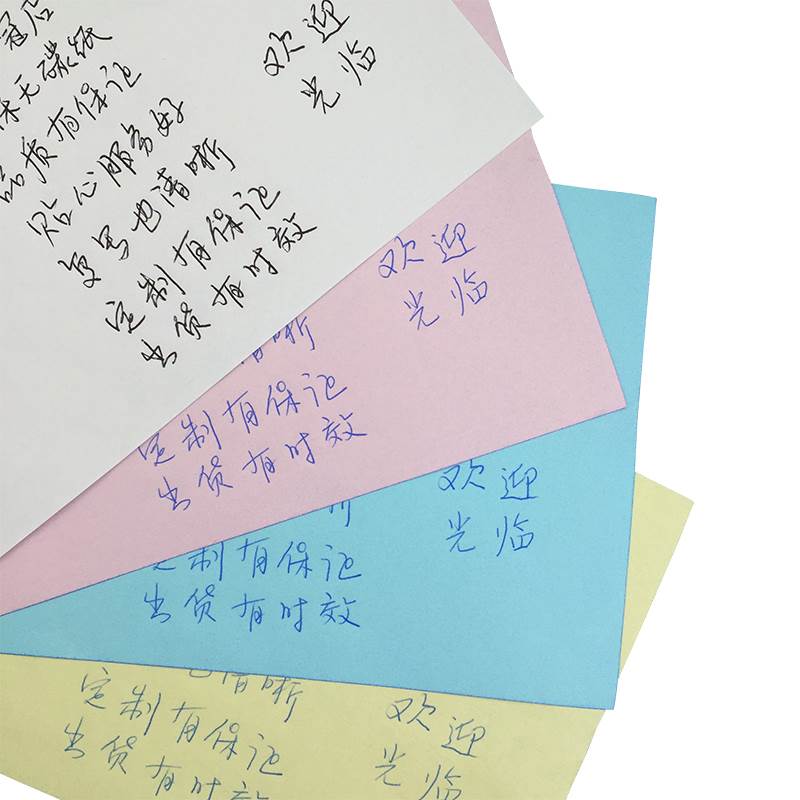 冠后
保无碳纸
品质有保证
贴心服务好
复写也清晰
定制有保证
出货有时效
欢迎
光临
清晰
定制有保证
出货有时效
欢迎
光临
晰
定制有保证
出货有时效
欢迎
光临
也清晰
定制有保证
出货有时效
欢迎
光临